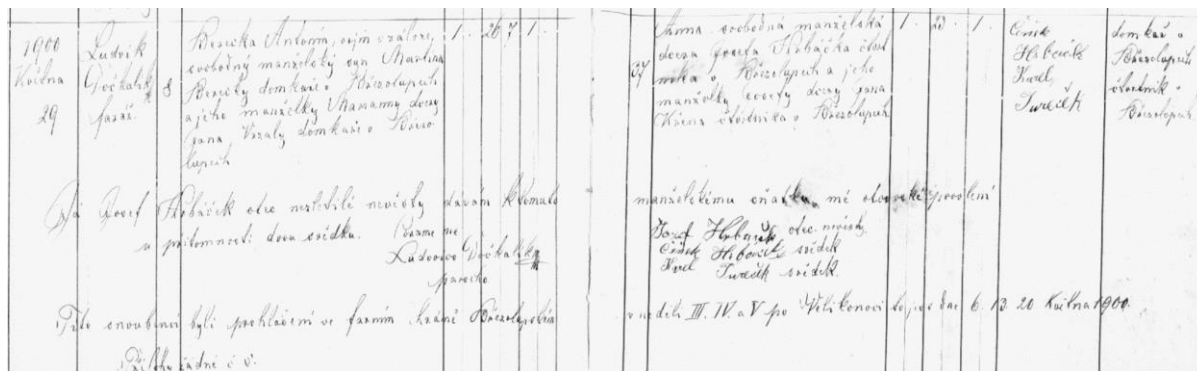 1900
Května
29
Ludvík
Dočkalík
farář
8
Beníčka Antonín, vojín v záloze,
svobodný manželský syn Martina
Beníčky domkaře v Březolupích
a jeho manželky Marianny dcery
Jana Vrzaly domkaře v Březo
lupích
1. 26 7 1.
37
Anna svobodná manželská
dcera Josefa Hrbáčka
v Březolupích a jeho
manželky Josefy dcery Jana
v Březolupích
1. 23. 1.
Hrbáček
Karel
Tureček
domkař v
Březolupích
v
Březolupích
Já Josef Hrbáček otec nezletilé nevěsty dávám k tomuto
manželskému sňatku mé otcovské povolení
v přítomnosti dvou svědků.
Josef Hrbaček otec nevěsty
Hrbáček svědek
Karel Tureček svědek
Dočkalík
parocho
Tito snoubenci byli prohlášeni ve farním chrámě Březolupském
v neděli III. IV. a V po Velikonoci to jest dne 6. 13. 20 Května 1900.